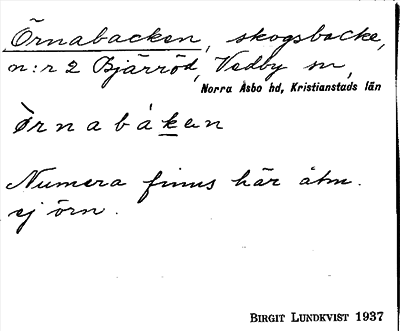 Örnabacken, skogsbacke,
n:r 2 Bjärröd, Vedby sn,
Norra Åsbo hd, Kristianstads län
Òrnabáken
Numera finns här åtm.
ej örn.
BIRGIT LUNDKVIST 1937